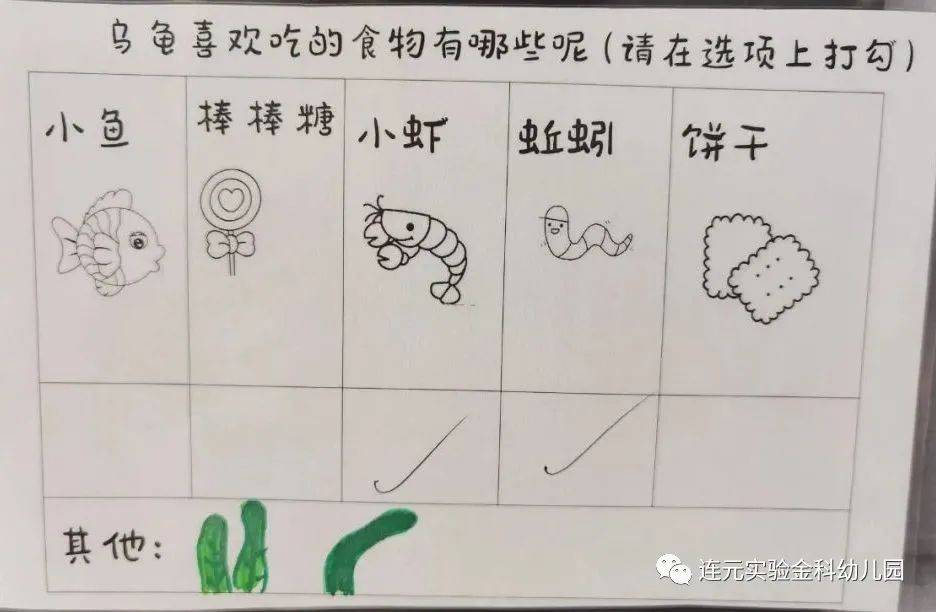 乌龟喜欢吃的食物有哪些呢(请在选项上打勾)
小鱼 棒棒糖 小虾 蚯蚓 饼干
其他:
连元实验金科幼儿园